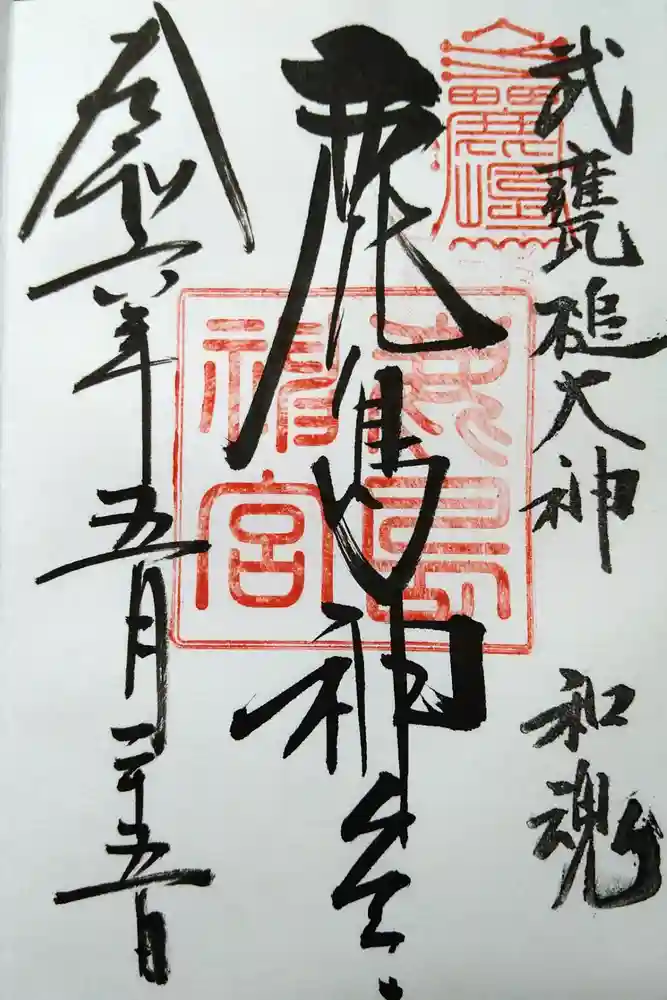 武甕槌大神 和魂
鹿島神宮
令和六年五月二十五日
神宮